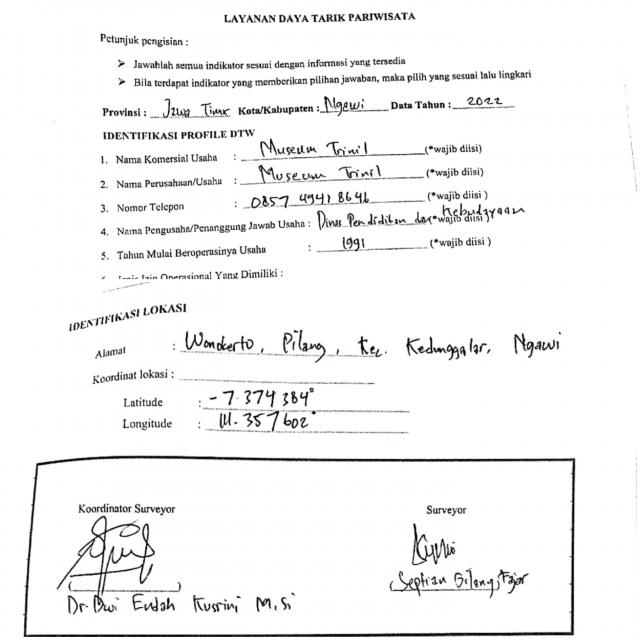 LAYANAN DAYA TARIK PARIWISATA
Petunjuk pengisian :
➢ Jawablah semua indikator sesuai dengan informasi yang tersedia
➢ Bila terdapat indikator yang memberikan pilihan jawaban, maka pilih yang sesuai lalu lingkari
Provinsi : Jawa Timur Kota/Kabupaten : Ngawi Data Tahun : 2022
IDENTIFIKASI PROFILE DTW
1. Nama Komersial Usaha : Museum Trinil (*wajib diisi)
2. Nama Perusahaan/Usaha : Museum Trinil (*wajib diisi)
3. Nomor Telepon : 0857 4941 8646 (*wajib diisi )
4. Nama Pengusaha/Penanggung Jawab Usaha : Dinas Pendidikan dan Kebudayaan (*wajib diisi )
5. Tahun Mulai Beroperasinya Usaha : 1991 (*wajib diisi )
Izin Operasional Yang Dimiliki :
IDENTIFIKASI LOKASI
Alamat : Wonokerto, Pilang, Kec. Kedunggalar, Ngawi
Koordinat lokasi :
Latitude : -7.374384°
Longitude : 111.357602°
Koordinator Surveyor Surveyor
(Septian Gilang Fajar
Dr. Dwi Endah Kusrini M.Si